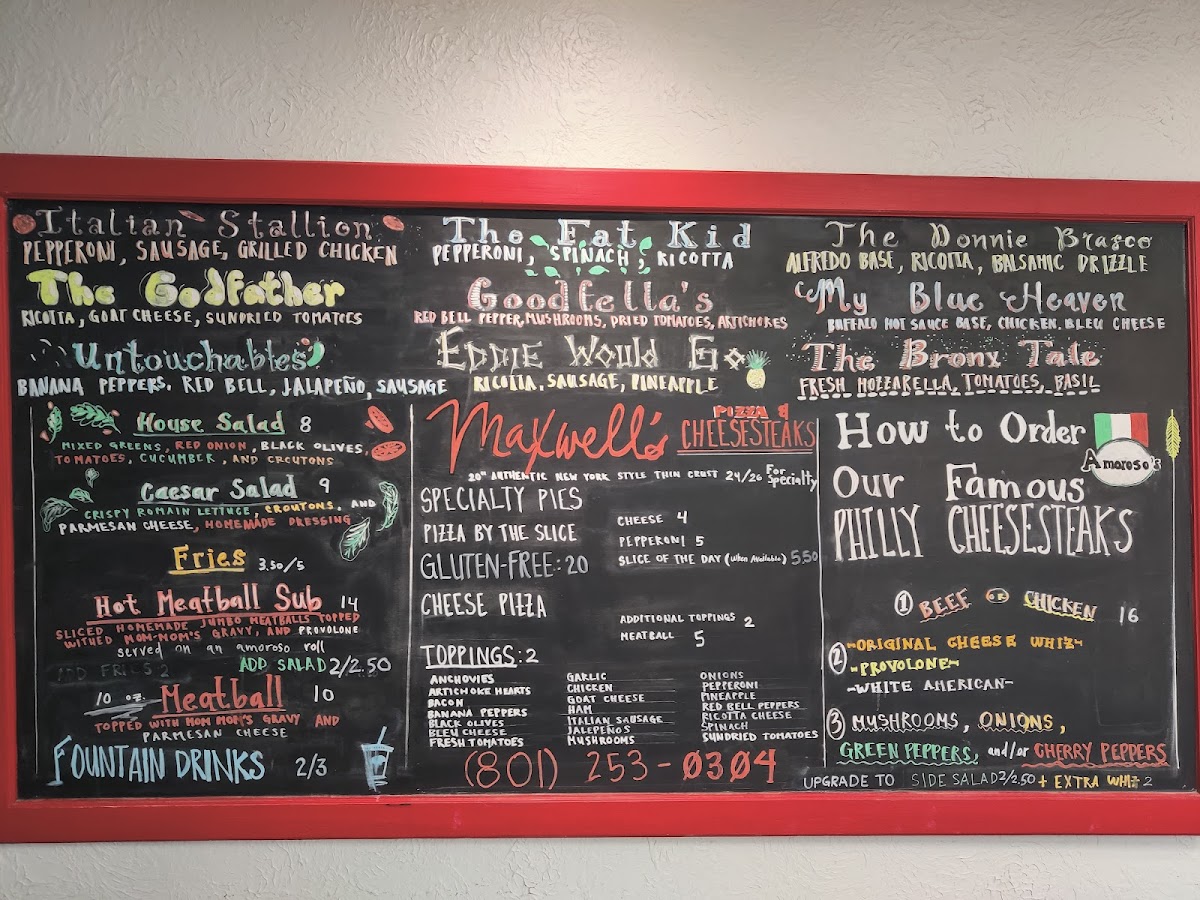 Italian Stallion
PEPPERONI, SAUSAGE, GRILLED CHICKEN
The Godfather
RICOTTA, GOAT CHEESE, SUNDRIED TOMATOES
Untouchables
BANANA PEPPERS, RED BELL, JALAPEÑO, SAUSAGE
The Fat Kid
PEPPERONI, SPINACH, RICOTTA
Goodfella's
RED BELL PEPPER, MUSHROOMS, DRIED TOMATOES, ARTICHOKES
EDDIE WOULD GO
RICOTTA, SAUSAGE, PINEAPPLE
The Donnie Brasco
ALFREDO BASE, RICOTTA, BALSAMIC DRIZZLE
My Blue Heaven
BUFFALO HOT SAUCE BASE, CHICKEN, BLEU CHEESE
The Bronx Tale
FRESH MOZZARELLA, TOMATOES, BASIL
House Salad 8
MIXED GREENS, RED ONION, BLACK OLIVES,
TOMATOES, CUCUMBER, AND CROUTONS
Caesar Salad 9
CRISPY ROMAIN LETTUCE, CROUTONS, AND
PARMESAN CHEESE, HOMEMADE DRESSING
Fries 3.50/5
Hot Meatball Sub 14
SLICED HOMEMADE JUMBO MEATBALLS TOPPED
WITHED MOM-MOM'S GRAVY, AND PROVOLONE
served on an amoroso roll
ADD FRIES 2 ADD SALAD 2/2.50
10 oz. Meatball 10
TOPPED WITH MOM MOM'S GRAVY AND
PARMESAN CHEESE
FOUNTAIN DRINKS 2/3
Maxwell's PIZZA &
CHEESESTEAKS
20" AUTHENTIC NEW YORK STYLE THIN CRUST 24/26 For Specialty
SPECIALTY PIES
PIZZA BY THE SLICE
GLUTEN-FREE: 20
CHEESE PIZZA
CHEESE 4
PEPPERONI 5
SLICE OF THE DAY (When Available) 5.50
ADDITIONAL TOPPINGS 2
MEATBALL 5
TOPPINGS: 2
ANCHOVIES
ARTICHOKE HEARTS
BACON
BANANA PEPPERS
BLACK OLIVES
BLEU CHEESE
FRESH TOMATOES
GARLIC
CHICKEN
GOAT CHEESE
HAM
ITALIAN SAUSAGE
JALEPEÑOS
MUSHROOMS
ONIONS
PEPPERONI
PINEAPPLE
RED BELL PEPPERS
RICOTTA CHEESE
SPINACH
SUNDRIED TOMATOES
(801) 253-0304
How to Order
Our Famous
PHILLY CHEESESTEAKS
Amoroso's
1 BEEF OR CHICKEN 16
2 -ORIGINAL CHEESE WHIZ-
-PROVOLONE-
-WHITE AMERICAN-
3 MUSHROOMS, ONIONS,
GREEN PEPPERS, and/or CHERRY PEPPERS
UPGRADE TO SIDE SALAD 2/2.50 + EXTRA WHIZ 2